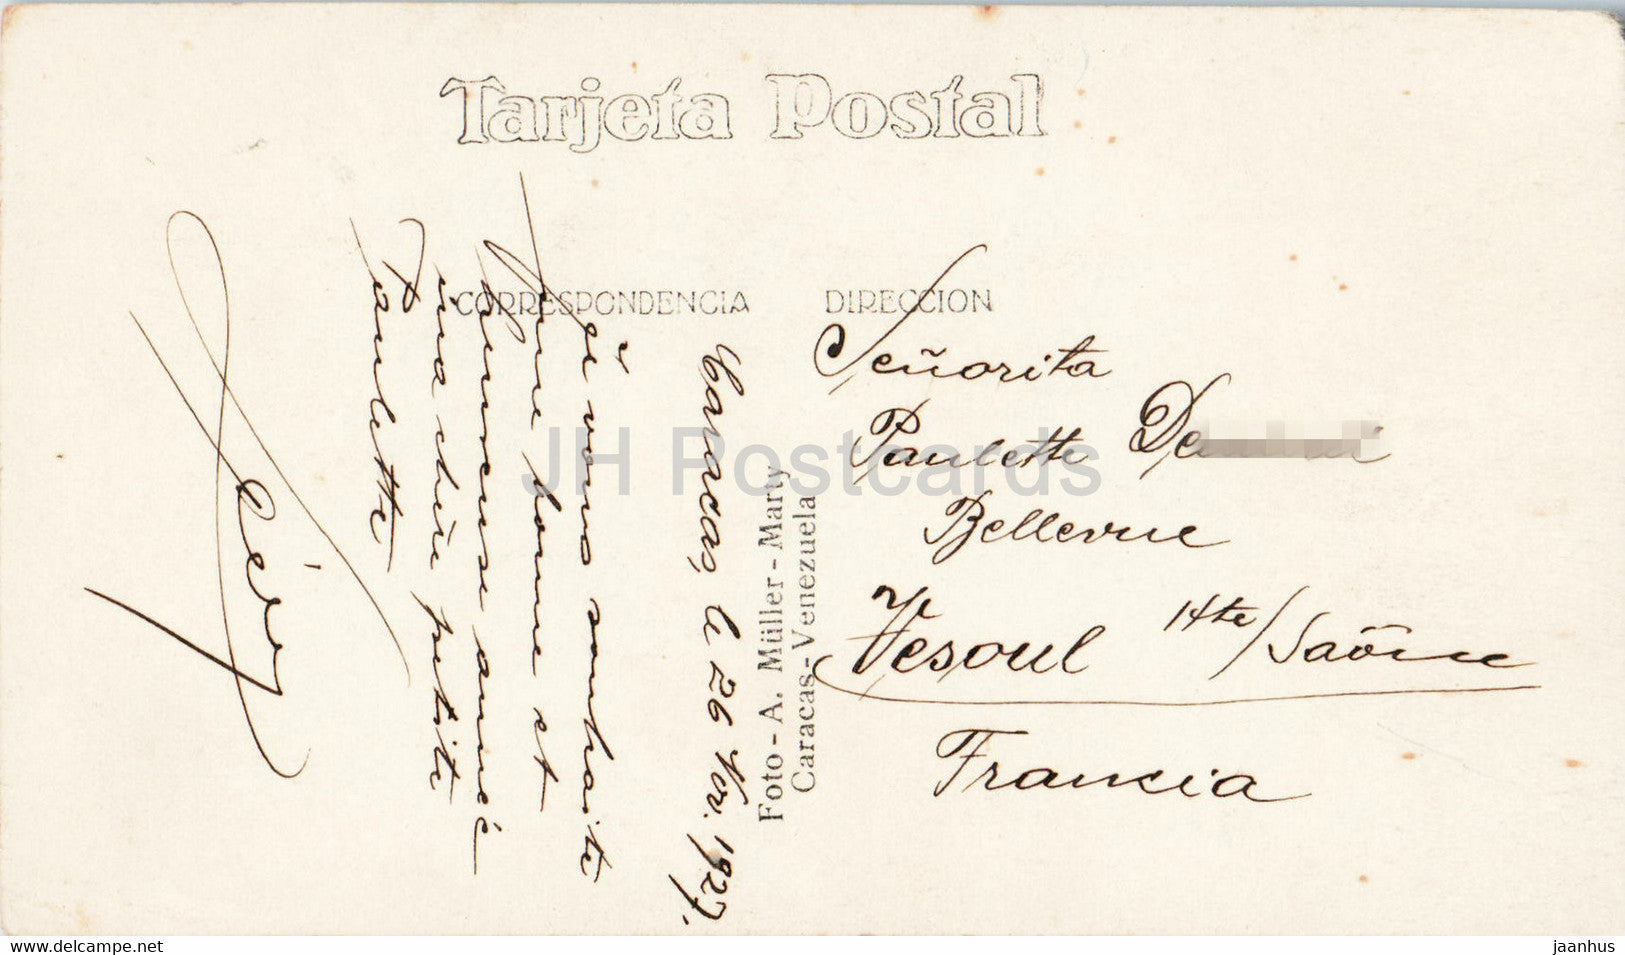 Tarjeta Postal
CORRESPONDENCIA
DIRECCION
Caracas, le 26 Nov. 1927.
Je vous souhaite
une bonne et
heureuse année
ma chère petite
Paulette
Foto - A. Müller - Marty
Caracas - Venezuela
Señorita
Paulette
Bellevue
Vesoul Hte/Saône
Francia
JH Postcards
www.delcampe.net
jaanhus